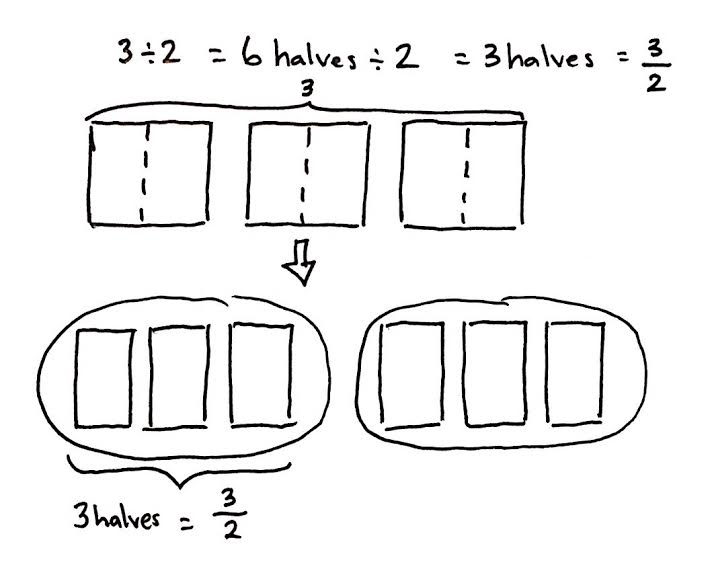 3÷2 = 6 halves ÷ 2 = 3 halves = 3/2
3
3 halves = 3/2